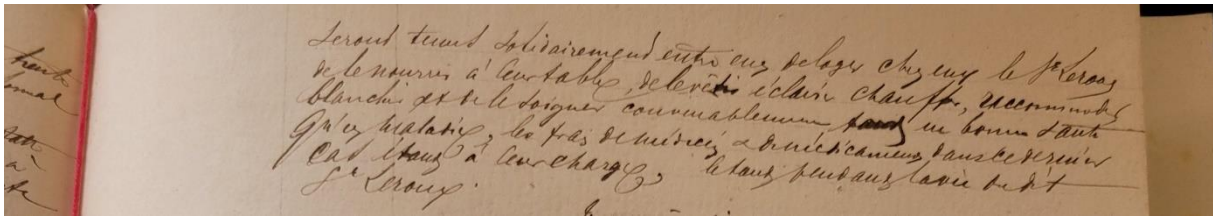 seront tenus solidairement entre eux de loger chez eux le Sr Leroux
de le nourrir à leur table, de le vêtir éclairer chauffer, raccommoder
blanchir et de le soigner convenablement tant en bonne santé
qu'en maladie, les frais de médecin & de médicaments dans ce dernier
cas étant à leur charge, le tout pendant la vie du dit
Sr Leroux.
à